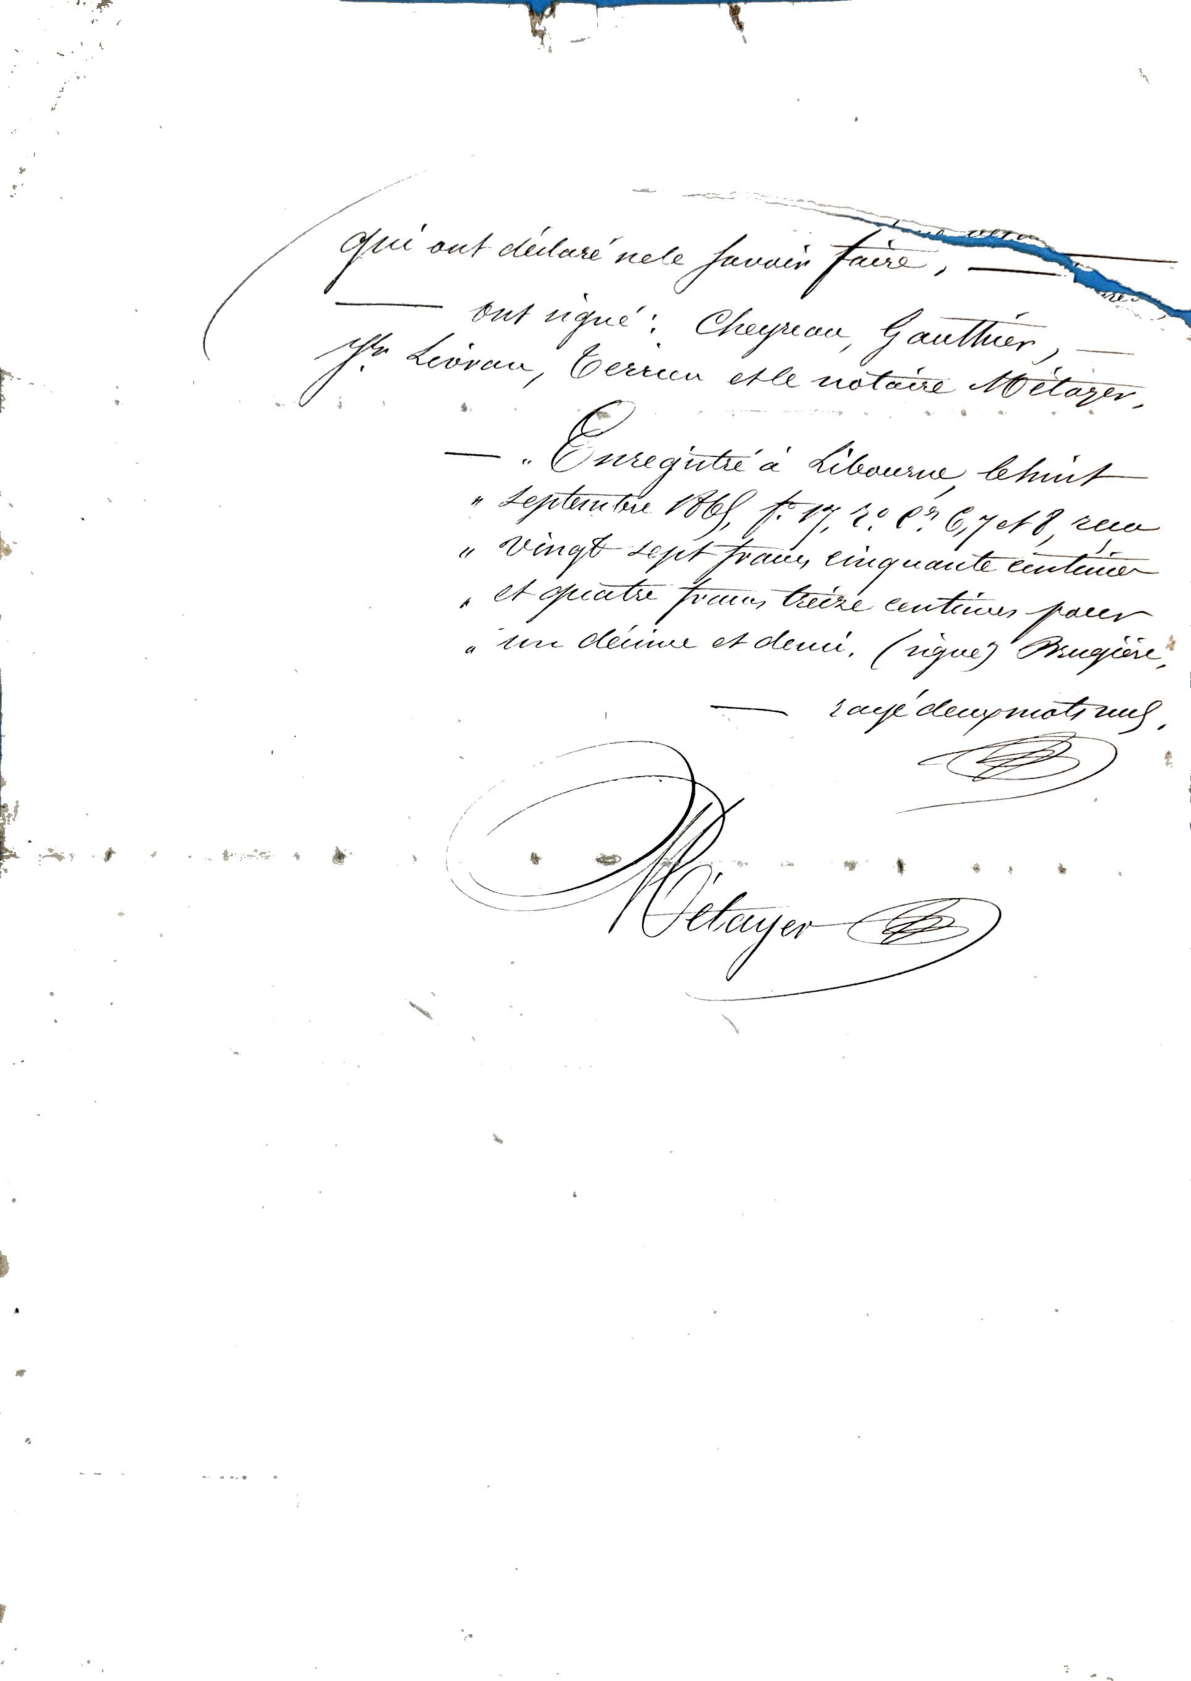 qui ont déclaré ne le savoir faire, —
— ont signé : Cheyreau, Gauthier, —
Livran, Terrien et le notaire Métayer.
— " Enregistré à Libourne, le huit
" septembre 1865, f.º 17, r.º c.es 6, 7 et 8, reçu
" vingt sept francs cinquante centimes
" et quatre francs treize centimes pour
" un décime et demi. (signé) Brugière.
— rayé deux mots nuls.
Métayer